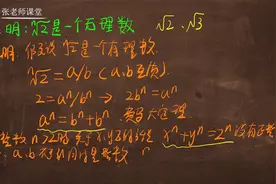 张老师课堂
明:ⁿ√2是一个无理数 √2、√3
明: 假设ⁿ√2是一个有理数.
ⁿ√2=a/b (a,b互质)
2=aⁿ/bⁿ ⇒ 2bⁿ=aⁿ
aⁿ=bⁿ+bⁿ 费马大定理
整数n>2时 关于x,y,z的方程 xⁿ+yⁿ=zⁿ没有正整